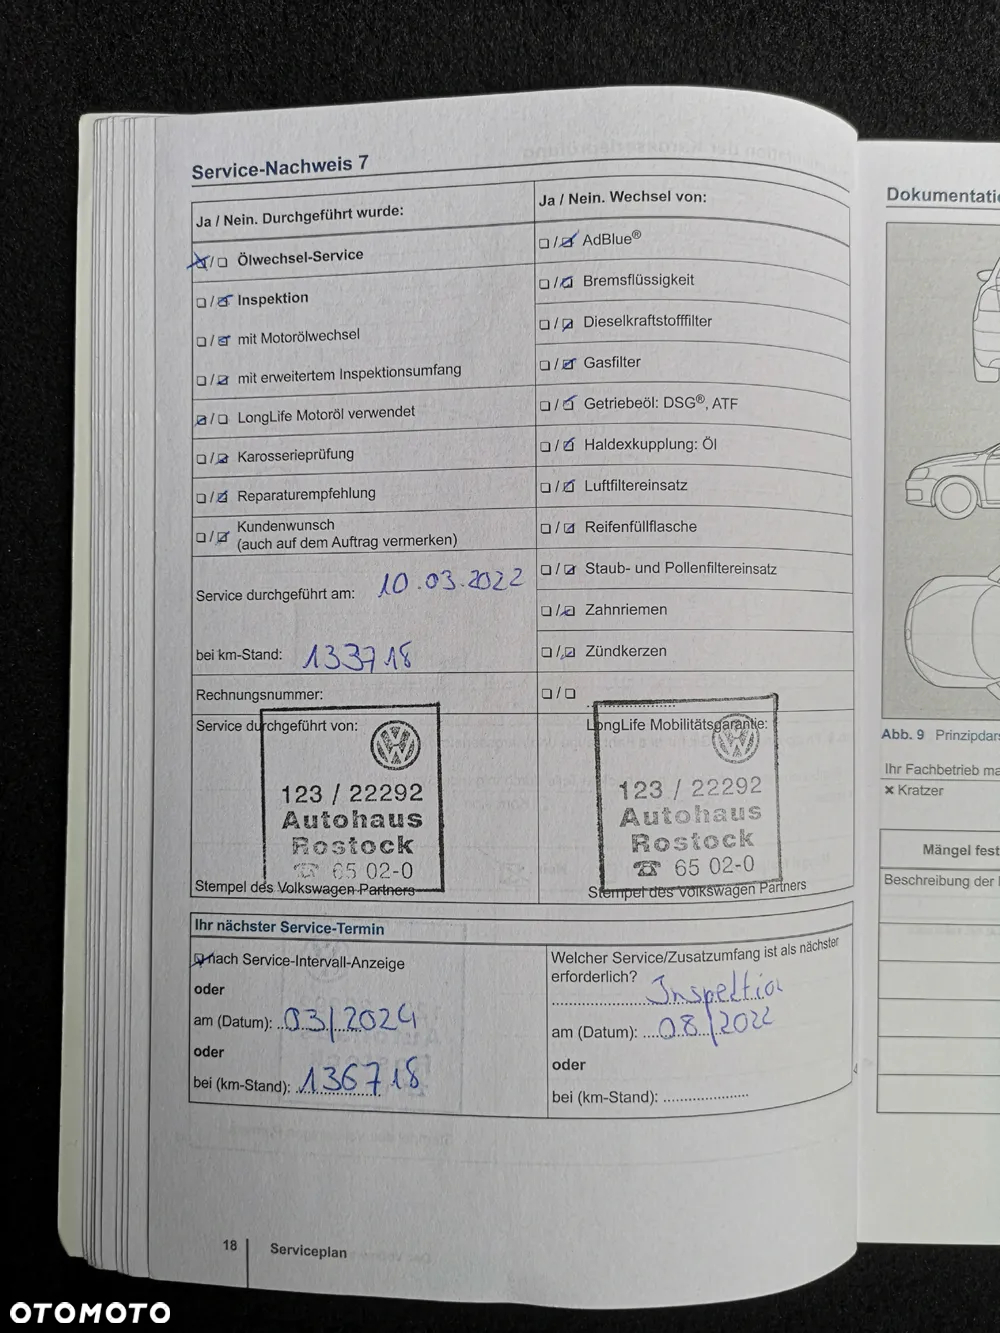 Service-Nachweis 7
Ja / Nein. Durchgeführt wurde:
Ölwechsel-Service
Inspektion
mit Motorölwechsel
mit erweitertem Inspektionsumfang
LongLife Motoröl verwendet
Karosserieprüfung
Reparaturempfehlung
Kundenwunsch
(auch auf dem Auftrag vermerken)
Service durchgeführt am: 10.03.2022
bei km-Stand: 133718
Rechnungsnummer:
Service durchgeführt von:
123 / 22292
Autohaus
Rostock
☎ 65 02-0
Stempel des Volkswagen Partners
Ja / Nein. Wechsel von:
AdBlue®
Bremsflüssigkeit
Dieselkraftstofffilter
Gasfilter
Getriebeöl: DSG®, ATF
Haldexkupplung: Öl
Luftfiltereinsatz
Reifenfüllflasche
Staub- und Pollenfiltereinsatz
Zahnriemen
Zündkerzen
LongLife Mobilitätsgarantie:
123 / 22292
Autohaus
Rostock
☎ 65 02-0
Stempel des Volkswagen Partners
Ihr nächster Service-Termin
nach Service-Intervall-Anzeige
oder
am (Datum): 03/2024
oder
bei (km-Stand): 136718
Welcher Service/Zusatzumfang ist als nächster
erforderlich?
Inspektion
am (Datum): 08/2022
oder
bei (km-Stand):
18 Serviceplan
Dokumentatio
Abb. 9 Prinzipdars
Ihr Fachbetrieb ma
× Kratzer
Mängel fest
Beschreibung der
OTOMOTO